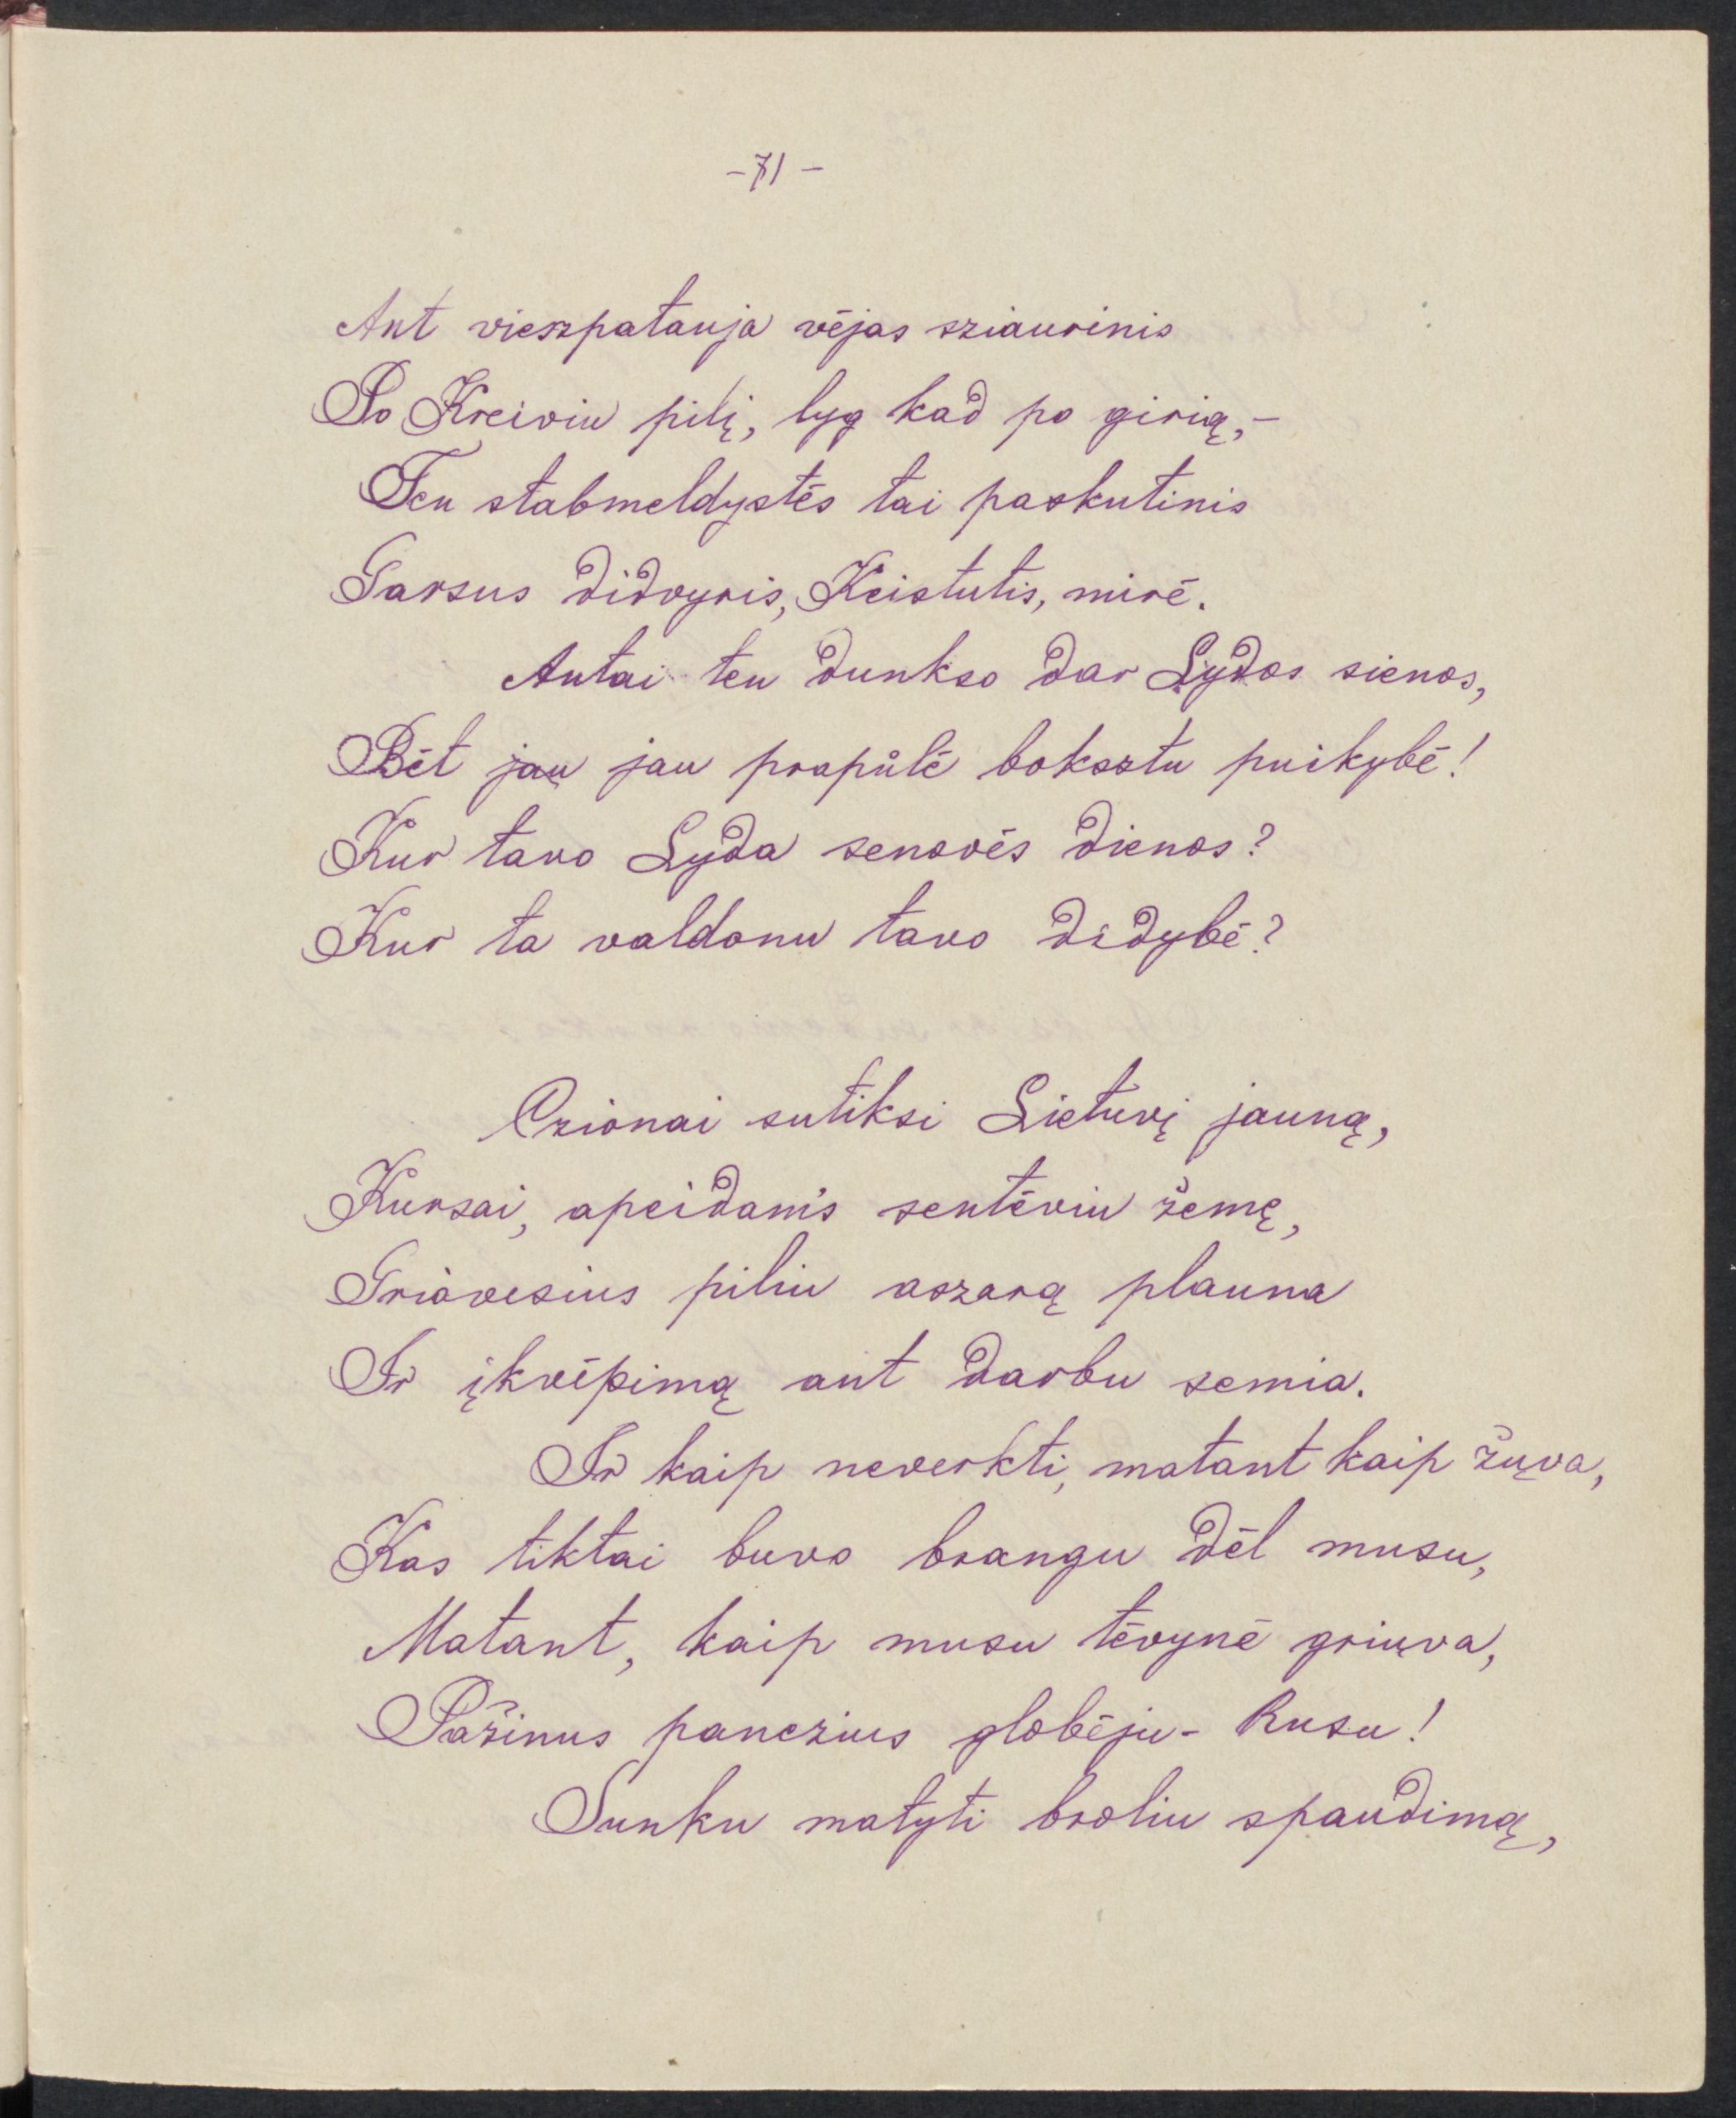 - 71 -
Ant vieszpatauja vėjas sziaurinis
Po Kreiviu pilį, lyg kad po girią,-
Ten stabmeldystės tai paskutinis
Garsus didvyris, Keistutis, mirė.
Antai ten dunkso dar Lydos sienos,
Bėt jau jau prapůlė boksztu puikybė!
Kur tavo Lyda senovės dienos?
Kur ta valdonu tavo didybė?
Czionai sutiksi Lietuvį jauną,
Kursai, apeidams sentėviu žemę,
Griovesius piliu aszarą plauna
Ir įkvėpimą ant darbu semia.
Ir kaip neverkti, matant kaip žųva,
Kas tiktai buvo brangu dėl musu,
Matant, kaip musu tėvynė griųva,
Pažinus panczius globėju- Rusu!
Sunku matyti broliu spaudimą,